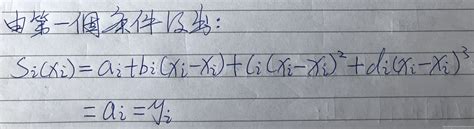 由第一個条件得出:
Si(xi)=ai+bi(xi-xi)+ci(xi-xi)²+di(xi-xi)³
=ai=yi